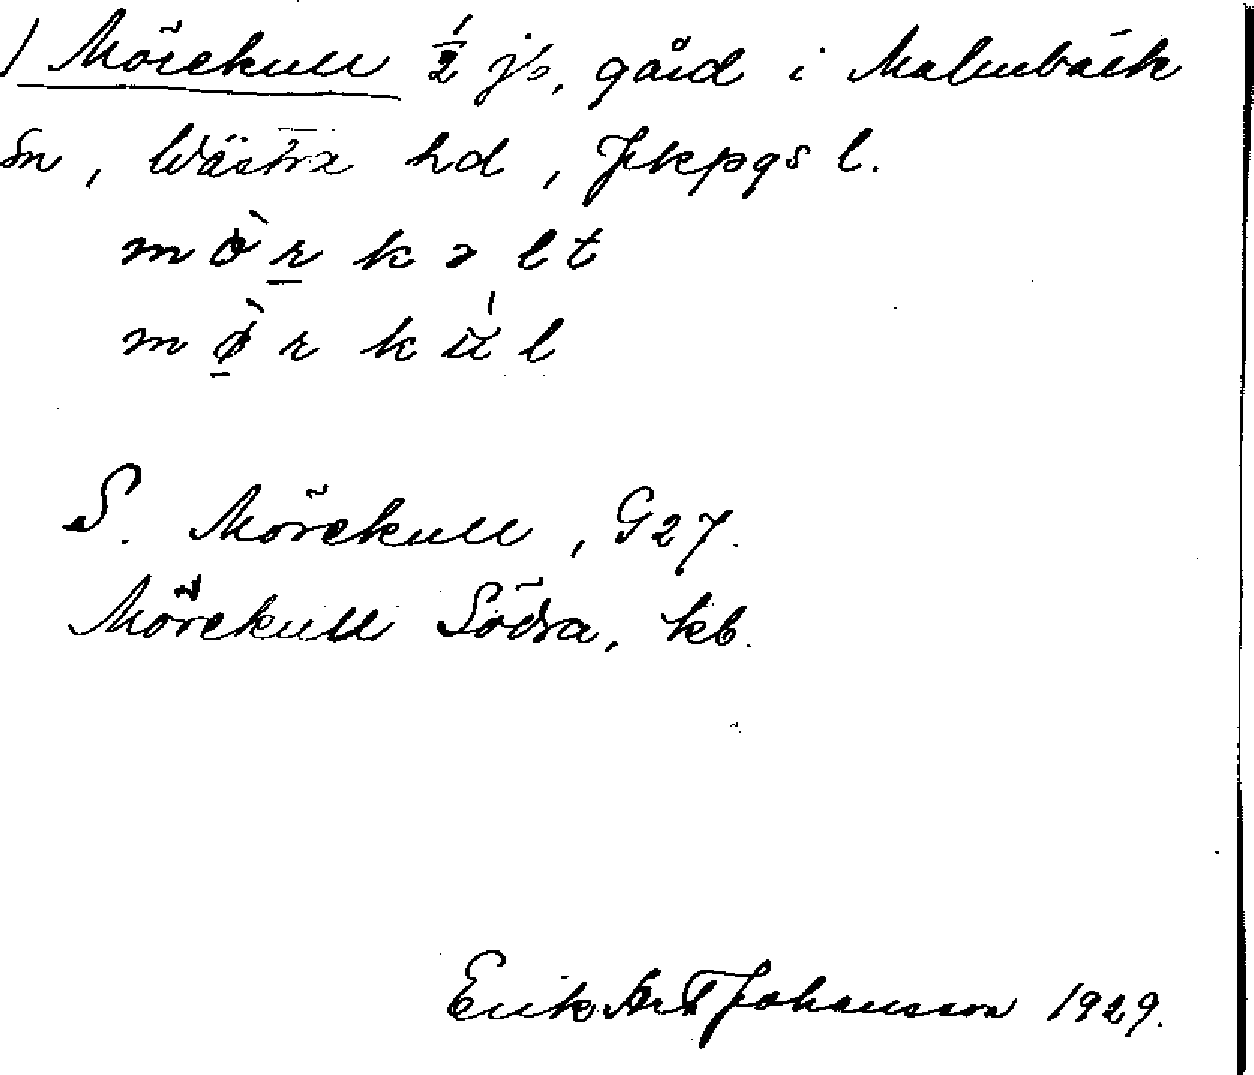 / Mörekull 1/2 js, gård i Malmbäck
Sn, Wästra hd, Jkpgs l.
m ò̈ r k ə l t
m ø̀ r k ú̈ l
S. Mörekull, G27.
Mörekull Södra, kb.
Erik Johansson 1929.